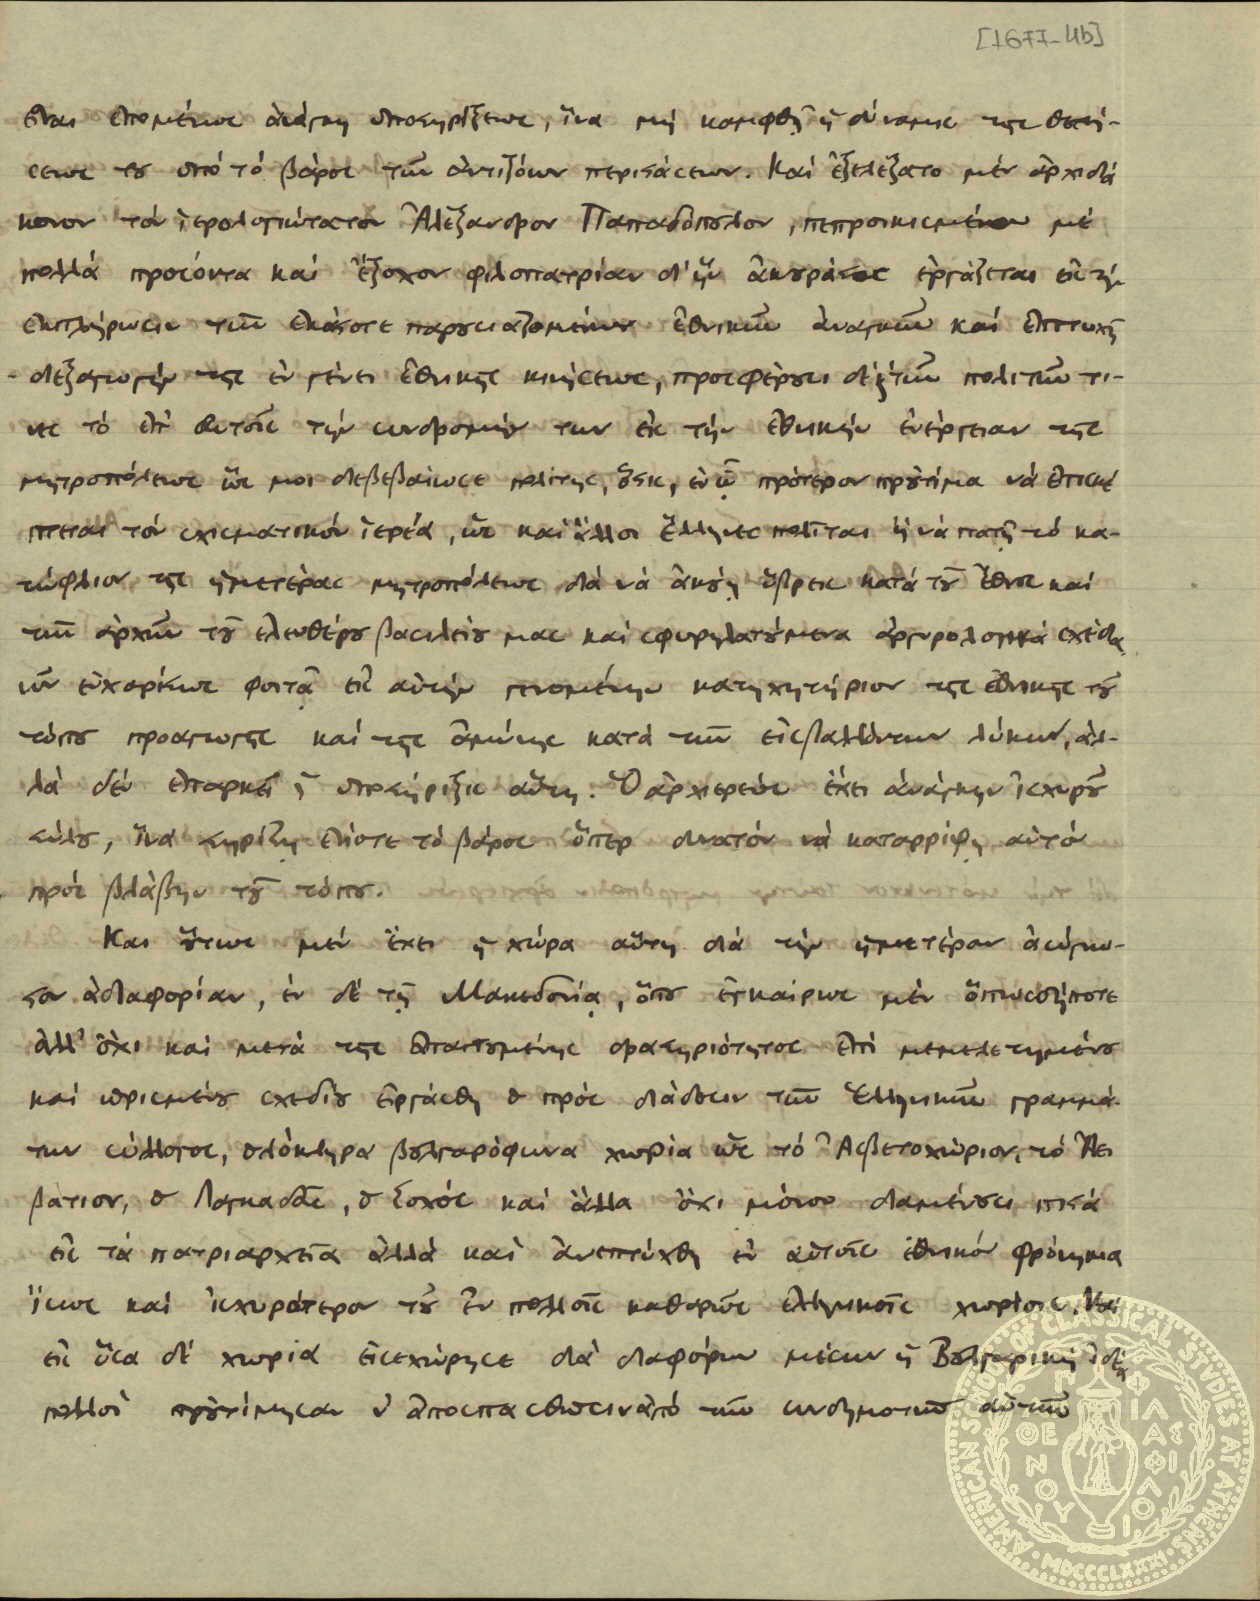 [1677-4b]
εἶναι ἑπομένως ἀνάγκη ὑποστηρίξεως, ἵνα μή καμφθῇ ἡ δύναμις τῆς θελή-
σεως του ὑπό τό βάρος τῶν ἀντιξόων περιστάσεων. Καί ἐξελέξατο μέν ἀρχιδιά
κονον τόν ἱερολογιώτατον Ἀλέξανδρον Παπαδόπουλον, πεπροικισμένον μέ
πολλά προσόντα καί ἔξοχον φιλοπατρίαν δι' ἥν ἀκουράστως ἐργάζεται εἰς τήν
ἐκπλήρωσιν τῶν ἑκάστοτε παρουσιαζομένων ἐθνικῶν ἀναγκῶν καί ἐπιτυχῆ
διεξαγωγήν τῆς ἐν γένει ἐθνικῆς κινήσεως, προσφέρουσι δέ κ τῶν πολιτῶν τι-
νες τό ἐπ' αὐτοῖς τήν συνδρομήν των εἰς τήν ἐθνικήν ἐνέργειαν τῆς
μητροπόλεως ὥς μοι διεβεβαίωσε πολίτης, ὅστις, ἐν ᾧ πρότερον προὐτίμα νά ἐπισκέ
πτεται τόν σχισματικόν ἱερέα, ὡς καί ἄλλοι Ἕλληνες πολῖται ἤ νά πατῇ τό κα-
τώφλιον τῆς ἡμετέρας μητροπόλεως διά νά ἀκούῃ ὕβρεις κατά τοῦ ἔθνους καί
τῶν ἀρχῶν τοῦ ἐλευθέρου βασιλείου μας καί σφυρηλατούμενα ἀργυρολογικά σχέδια,
νῦν εὐχαρίστως φοιτᾷ εἰς αὐτήν γενομένην κατηχητήριον τῆς ἐθνικῆς τοῦ
τόπου προαγωγῆς καί τῆς ἀμύνης κατά τῶν εἰσβαλλόντων λύκων, ἀλ-
λά δέν ἐπαρκεῖ ἡ ὑποστήριξις αὕτη. Ὁ ἀρχιερεύς ἔχει ἀνάγκην ἰσχυροῦ
στύλου, ἵνα στηρίζῃ ἐνίοτε τό βάρος ὅπερ δυνατόν νά καταρρίψῃ αὐτόν
πρός βλάβην τοῦ τόπου.
Και οὕτως μέν ἔχει ἡ χώρα αὕτη διά τήν ἡμετέραν ἀσύγγνω-
στον ἀδιαφορίαν, ἐν δέ τῇ Μακεδονίᾳ, ὅπου ἐγκαίρως μέν ὁπωσδήποτε
ἀλλ' ὄχι καί μετά τῆς ἀπαιτουμένης δραστηριότητος ἐπί μεμελετημένου
καί ὡρισμένου σχεδίου εἰργάσθη ὁ πρός διάδοσιν τῶν Ἑλληνικῶν γραμμά-
των σύλλογος, ὁλόκληρα βουλγαρόφωνα χωρία ὡς τό Ἀσβεστοχώριον, τό Ἀει
βάτιον, ὁ Λαγκαδᾶς, ὁ Σοχός καί ἄλλα ὄχι μόνον διαμένουσι πιστά
εἰς τά πατριαρχεῖα ἀλλά καί ἀνεπτύχθη ἐν αὐτοῖς ἐθνικόν φρόνημα
ἴσως καί ἰσχυρότερον τοῦ ἐν πολλοῖς καθαρῶς ἑλληνικοῖς χωρίοις. Καί
εἰς ὅσα δέ χωρία εἰσεχώρησε διά διαφόρων μέσων ἡ Βουλγαρική ἰδέα
πολλοί προὐτίμησαν ν' ἀποσπασθῶσιν ἀπό τῶν συνδημοτῶν αὐτῶν
AMERICAN SCHOOL OF CLASSICAL STUDIES AT ATHENS
MDCCCLXXXI